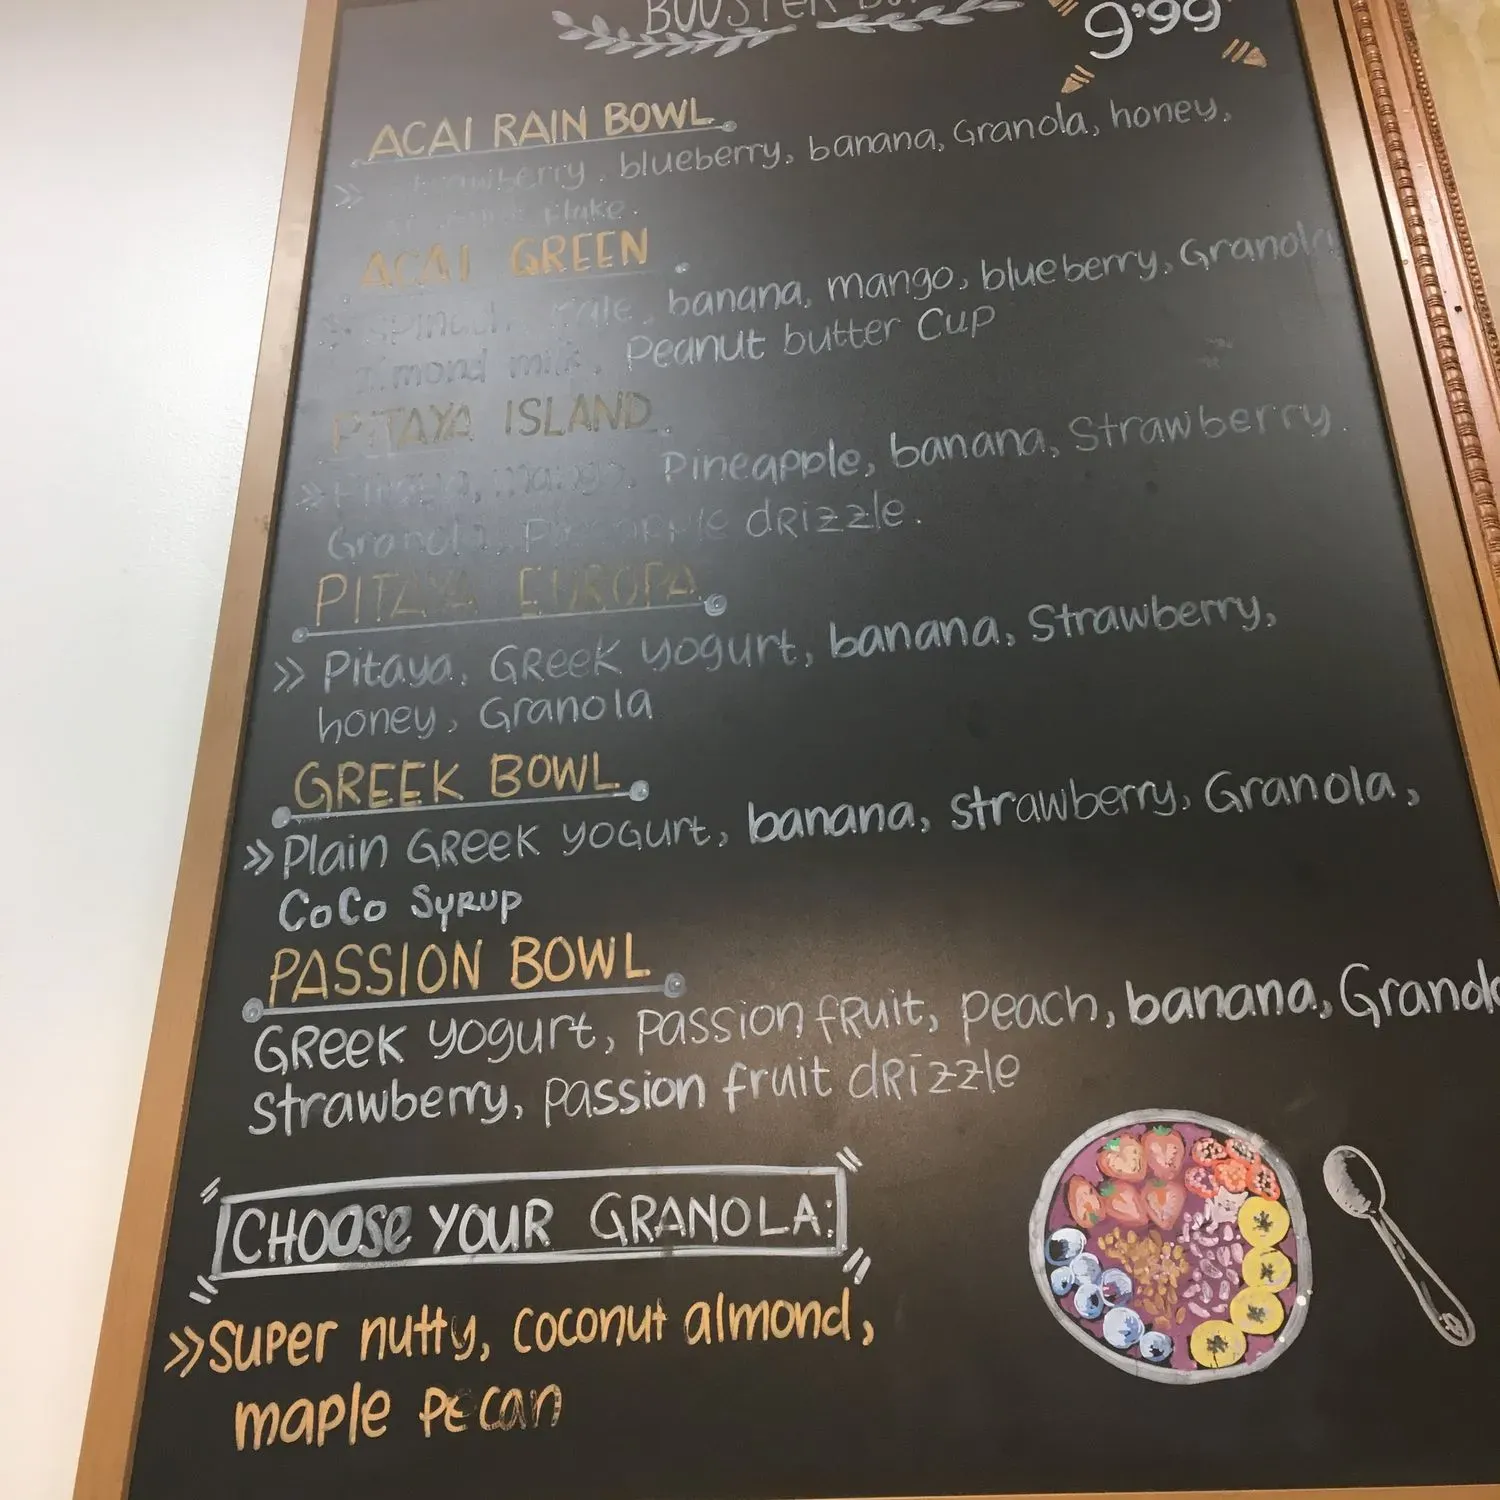 BOOSTER
9.99
ACAI RAIN BOWL
blueberry, banana, Granola, honey,
flake.
ACAI GREEN
» Spinach, kale, banana, mango, blueberry, Granola
almond milk, Peanut butter Cup
PITAYA ISLAND
» mango, Pineapple, banana, Strawberry
Granola, Pineapple dRizzle.
PITAYA EUROPA
» Pitaya, GReeK yogurt, banana, Strawberry,
honey, Granola
GREEK BOWL
» Plain GReeK yoGurt, banana, strawberry, Granola,
CoCo SyRUP
PASSION BOWL
GReeK yogurt, passion fRuit, peach, banana, Granola
Strawberry, passion fruit dRizzle
CHOOSe YOUR GRANOLA:
» SUPER nutty, coconut almond,
maple Pecan